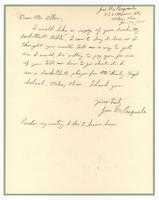 Jim DePasquale
Dear Mr. Allen,
I would like a copy of your booklet,
Basketball Bible. I can't buy it here so I
thought you would tell me a way to get
me. I would be willing to pay you for one
if you tell me how to go about it. I
am a basketball player for McKinley High
School, Niles, Ohio. Thank you.
Yours Truly,
Jim DePasquale
Pardon my writing I don't know how.